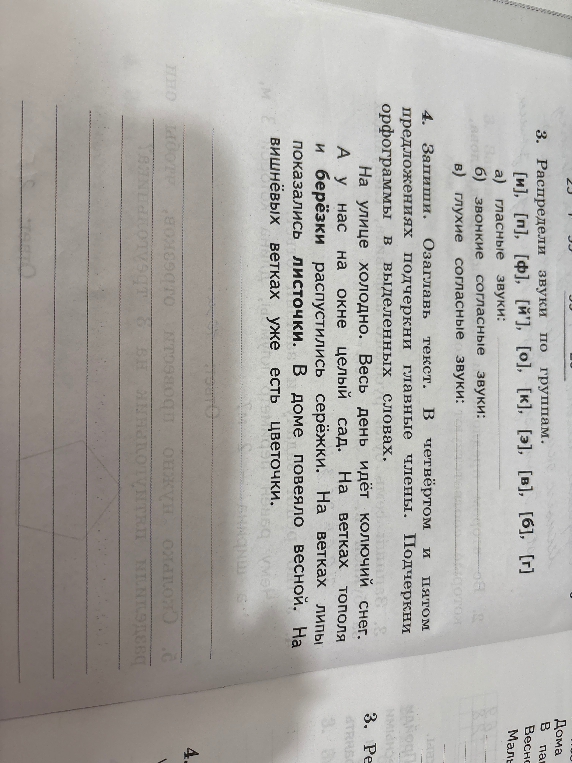 3. Распредели звуки по группам.
[и], [п], [ф], [й'], [о], [к], [э], [в], [б], [г]
а) гласные звуки:
б) звонкие согласные звуки:
в) глухие согласные звуки:
4. Запиши. Озаглавь текст. В четвёртом и пятом
предложениях подчеркни главные члены. Подчеркни
орфограммы в выделенных словах.
На улице холодно. Весь день идёт колючий снег.
А у нас на окне целый сад. На ветках тополя
и берёзки распустились серёжки. На ветках липы
показались листочки. В доме повеяло весной. На
вишнёвых ветках уже есть цветочки.
3.
4.
Дома